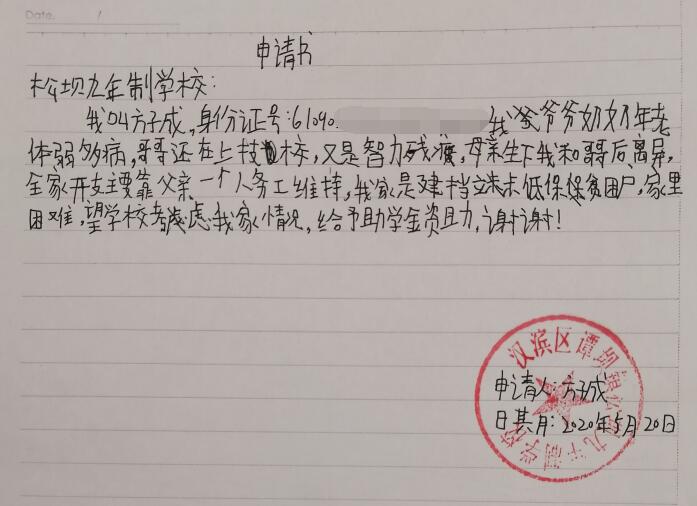 Date. /
申请书
松坝九年制学校:
我叫方子成,身份证号:61090 我爸爷爷奶奶年老
体弱多病,哥哥还在上技校,又是智力残疾,母亲生下我和哥后离异,
全家开支主要靠父亲一个人务工维持,我家是建档立卡低保贫困户,家里
困难,望学校考虑我家情况,给予助学金资助,谢谢!
汉滨区谭坝镇松坝九年制学校
申请人:方子成
日期:2020年5月20日